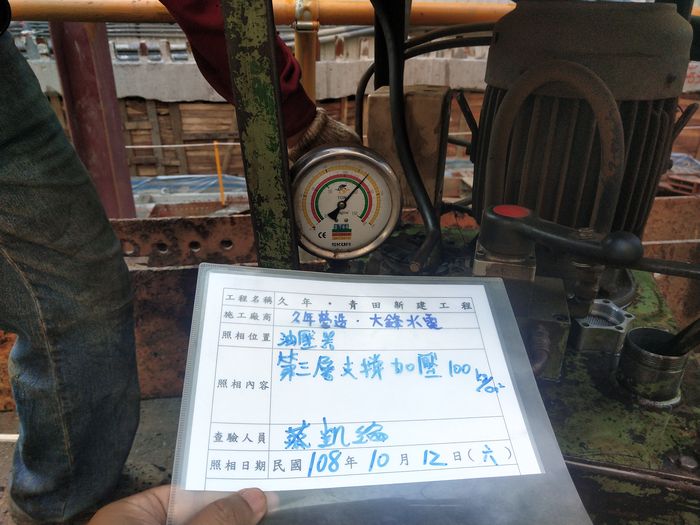 工程名稱 久年・青田新建工程
施工廠商 久年營造・大鋒水電
照相位置 油壓器
照相內容 第三層支撐加壓100 kg/cm²
查驗人員 蔡凱綸
照相日期 民國108年10月12日(六)
CE